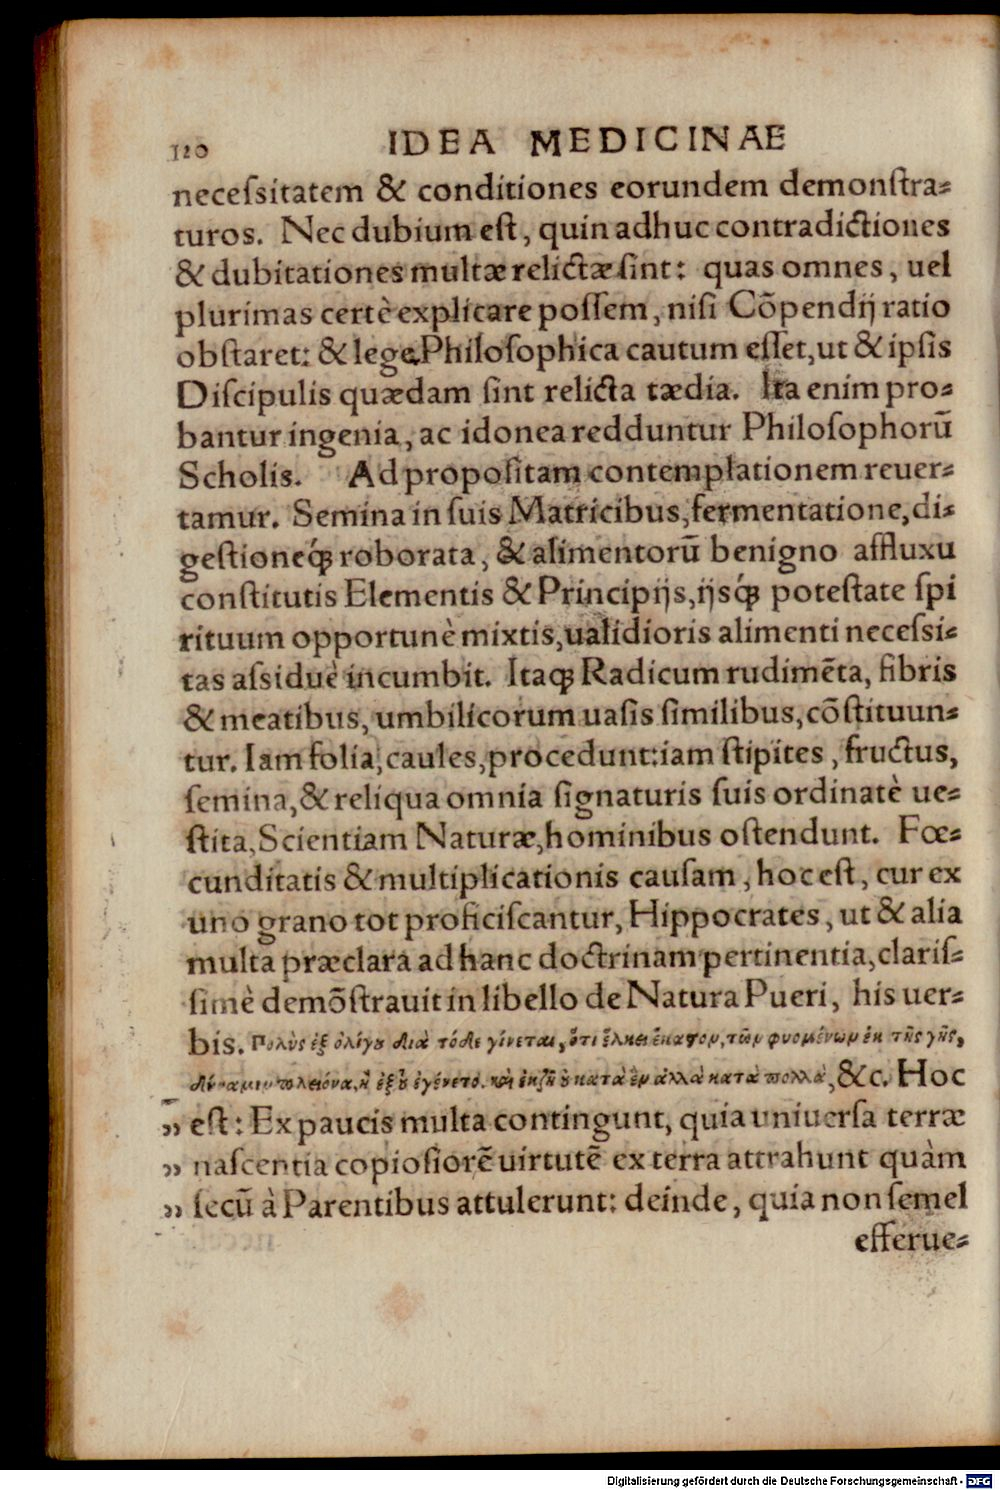 120 IDEA MEDICINAE
neceſsitatem & conditiones eorundem demonſtra-
turos. Nec dubium eſt, quin adhuc contradictiones
& dubitationes multæ relictæ ſint: quas omnes, uel
plurimas certè explicare poſſem, niſi Cōpendij ratio
obſtaret: & lege Philoſophica cautum eſſet, ut & ipſis
Diſcipulis quædam ſint relicta tædia. Ita enim pro-
bantur ingenia, ac idonea redduntur Philoſophorū
Scholis. Ad propoſitam contemplationem reuer-
tamur. Semina in ſuis Matricibus, fermentatione, di-
geſtioneq́; roborata, & alimentorū benigno affluxu
conſtitutis Elementis & Principijs, ijsq́; poteſtate ſpi
rituum opportunè mixtis, ualidioris alimenti neceſsi-
tas aſsiduè incumbit. Itaq; Radicum rudimēta, fibris
& meatibus, umbilicorum uaſis ſimilibus, cōſtituun-
tur. Iam folia, caules, procedunt: iam ſtipites, fructus,
ſemina, & reliqua omnia ſignaturis ſuis ordinatè ue-
ſtita, Scientiam Naturæ, hominibus oſtendunt. Fœ-
cunditatis & multiplicationis cauſam, hoc eſt, cur ex
uno grano tot proficiſcantur, Hippocrates, ut & alia
multa præclara ad hanc doctrinam pertinentia, clariſ-
ſimè demōſtrauit in libello de Natura Pueri, his uer-
bis. Πολὺς ἐξ ὀλίγου διὰ τόδε γίνεται, ὅτι ἕλκει ἕκαστον, τῶν φυομένων ἐκ τῆς γῆς,
δύναμιν πλειόνα, ἢ ἐξ οὗ ἐγένετο. καὶ ἐκζῇ οὐ κατὰ ἓν ἀλλὰ κατὰ πολλὰ, &c. Hoc
„ eſt: Ex paucis multa contingunt, quia uniuerſa terræ
„ naſcentia copioſiorē uirtutē ex terra attrahunt quàm
„ ſecū à Parentibus attulerunt: deinde, quia non ſemel
efferue-
Digitalisierung gefördert durch die Deutsche Forschungsgemeinschaft - DFG